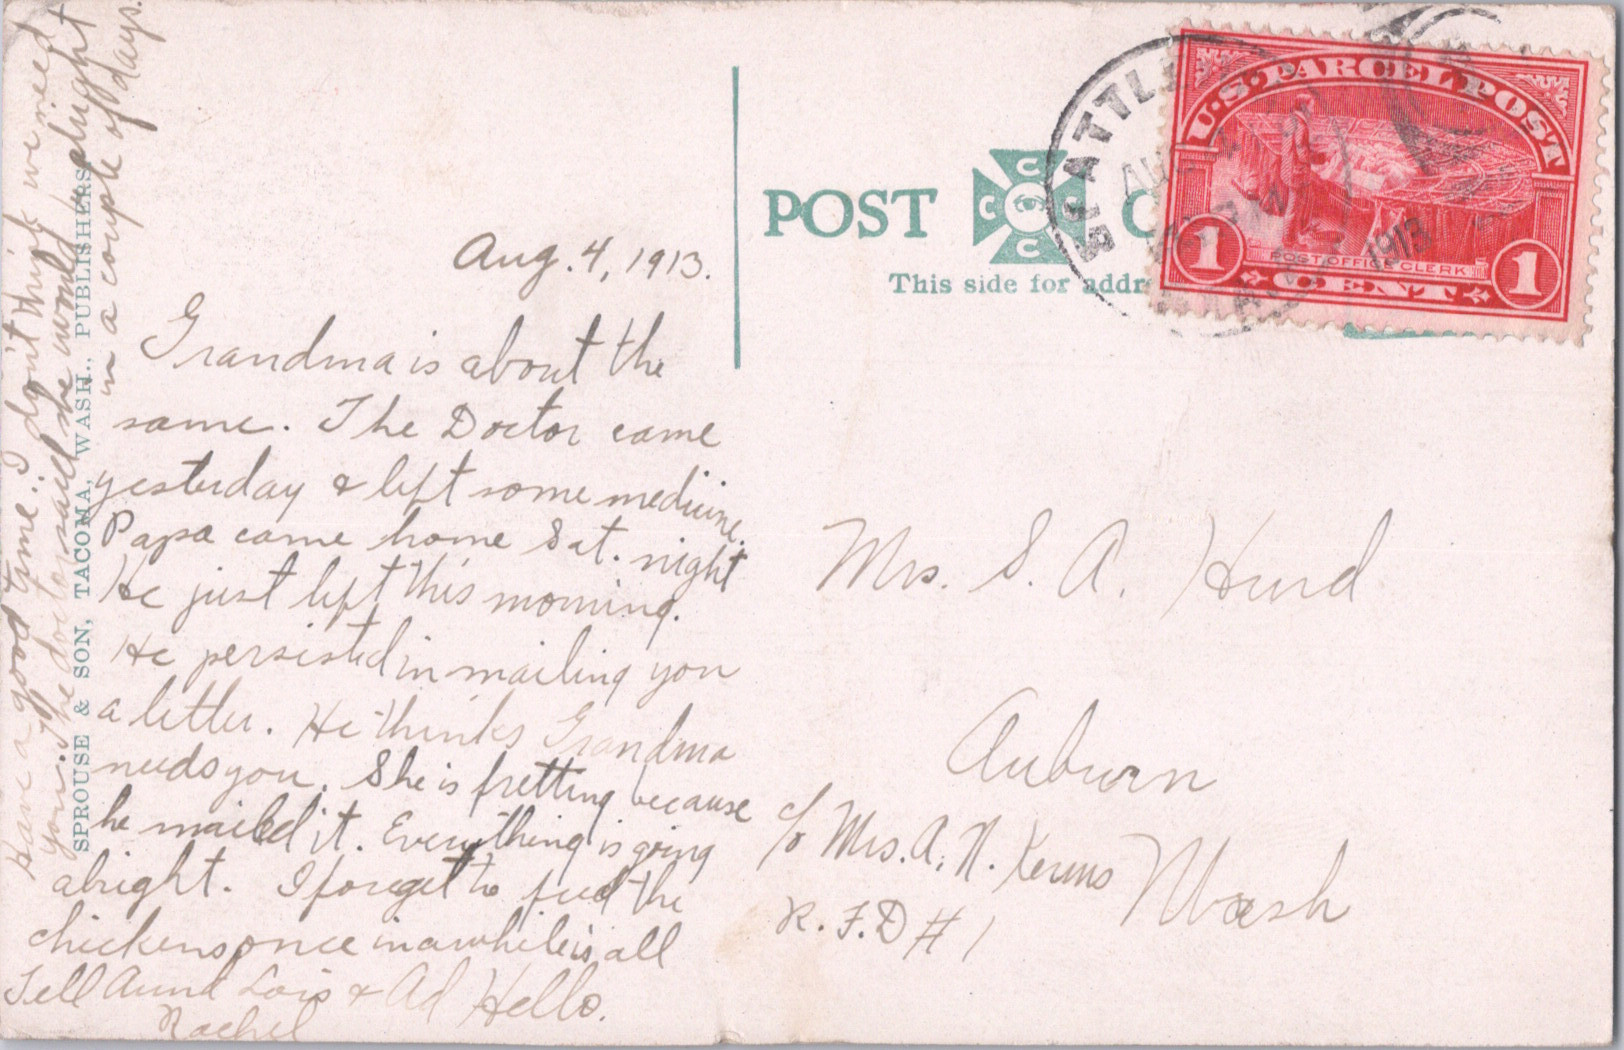 Aug. 4, 1913.
Grandma is about the
same. The Doctor came
yesterday & left some medicine.
Papa came home Sat. night
He just left this morning.
He persisted in mailing you
a letter. He thinks Grandma
needs you. She is fretting because
he mailed it. Everything is going
alright. I forget to feed the
chickens once in a while is all
Tell Aunt Lois & Ad Hello.
Rachel
Have a good time. I don't think we need
you. The doctor said she would be alright
in a couple of days.
SPROUSE & SON, TACOMA, WASH., PUBLISHERS
POST C
C C C C
This side for addr
SEATTLE
AUG
1913
WASH
U.S. PARCEL POST
1 POST OFFICE CLERK 1
CENT
Mrs. S. A. Hurd
Auburn
c/o Mrs. A. N. Kerns Wash
R. F. D # 1